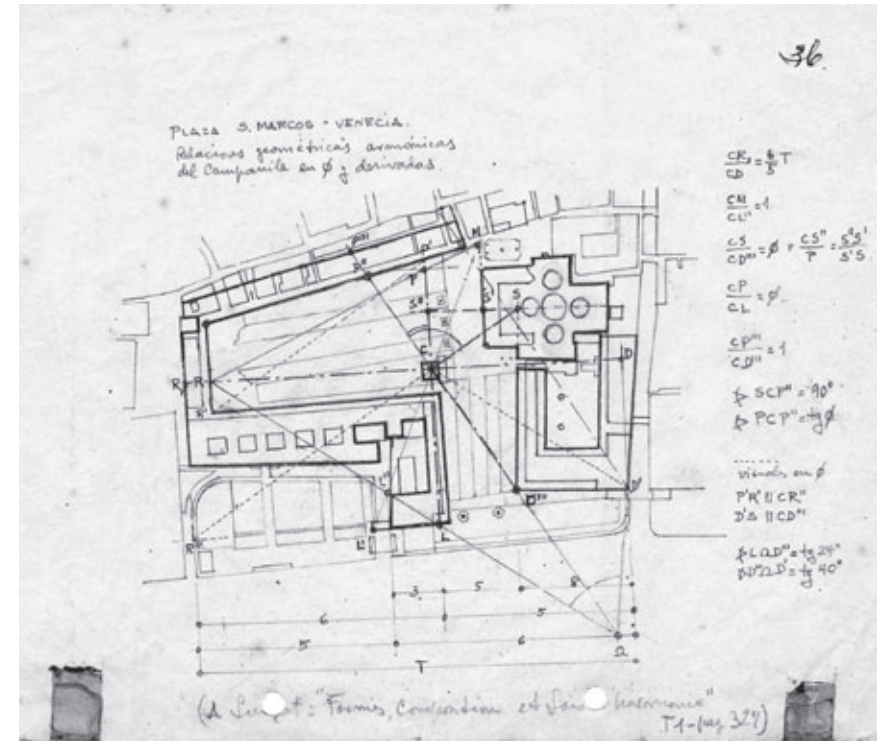 36
PLAZA S. MARCOS - VENECIA.
Relaciones geométricas armónicas
del Campanile en φ y derivadas.
CM/CL" = 1
CS/CD''' = φ = CS"/P = S"S'/S'S
CP/CL = φ
CP'''/CD''' = 1
SCP" = 90°
PCP" = tg φ
visuales en φ
P'R' || CR"
D'Δ || CD'''
LΩD" = tg 24°
D"ΩD' = tg 40°
P'''
P"
P'
M
P
S"
S'
S
C
R
R
R'
D
L"
D'''
D'
R"
L'
L
3
5
8
6
5
5
6
Ω
T
(A : "Formes, Composition et harmonie"
T1-pag 327)